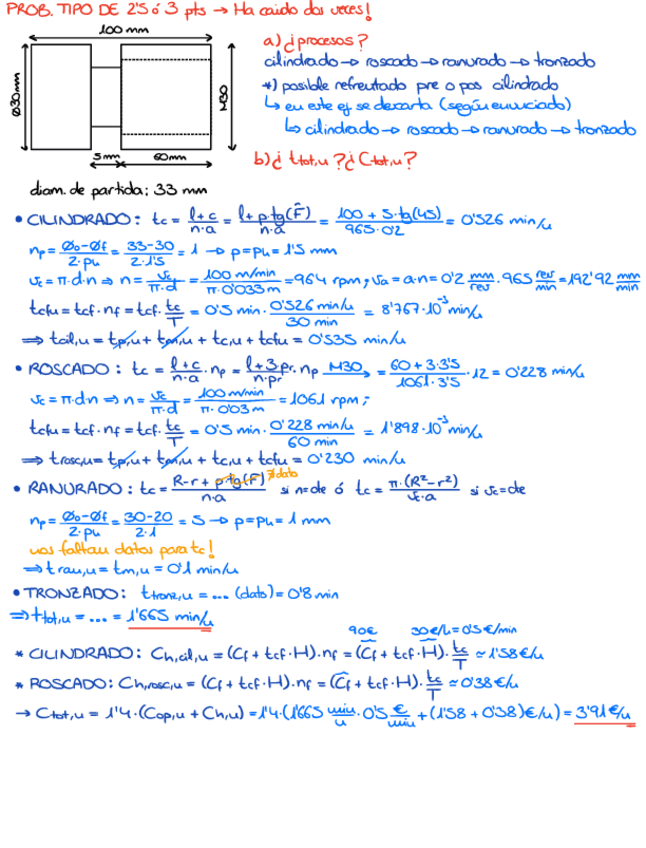 PROB. TIPO DE 2'5 ó 3 pts → Ha caído dos veces!
100 mm
Ø30mm
M30
5mm
60mm
a) ¿procesos?
cilindrado → roscado → ranurado → tronzado
*) posible refrentado pre o pos cilindrado
↳ en este ej se descarta (según enunciado)
↳ cilindrado → roscado → ranurado → tronzado
b) ¿ ttot,u ? ¿ Ctot,u ?
diam. de partida: 33 mm
• CILINDRADO: tc = (l+c)/(n·a) = (l+p·tg(F̂))/(n·a) = (100 + 5·tg(45))/(965·0'2) = 0'526 min/u
np = (Ø0-Øf)/(2·pu) = (33-30)/(2·1'5) = 1 → p=pu= 1'5 mm
vc = π·d·n ⇒ n = vc/(π·d) = (100 m/min)/(π·0'033m) = 964 rpm; va = a·n = 0'2 mm/rev · 965 rev/min = 192'92 mm/min
tcfu = tcf·nf = tcf·tc/T = 0'5 min · (0'526 min/u)/(30 min) = 8'767·10⁻³ min/u
⇒ tcil,u = tp,u + tm,u + tc,u + tcfu = 0'535 min/u
• ROSCADO: tc = (l+c)/(n·a)·np = (l+3pr)/(n·pr)·np M30→ = (60+3·3'5)/(1061·3'5)·12 = 0'228 min/u
vc = π·d·n ⇒ n = vc/(π·d) = (100 m/min)/(π·0'03 m) = 1061 rpm;
tcfu = tcf·nf = tcf·tc/T = 0'5 min · (0'228 min/u)/(60 min) = 1'898·10⁻³ min/u
⇒ trosc,u = tp,u + tm,u + tc,u + tcfu = 0'230 min/u
• RANURADO: tc = (R-r+p·tg(F̂))/(n·a) ∄ dato si n=cte ó tc = (π·(R²-r²))/(vc·a) si vc=cte
np = (Ø0-Øf)/(2·pu) = (30-20)/(2·1) = 5 → p=pu= 1 mm
nos faltan datos para tc!
⇒ tran,u = tm,u = 0'1 min/u
• TRONZADO: ttronz,u = ... (dato) = 0'8 min
⇒ ttot,u = ... = 1'665 min/u
90€ 30€/h=0'5€/min
* CILINDRADO: Ch,cil,u = (Cf + tcf·H)·nf = (Cf + tcf·H)·tc/T ≃ 1'58€/u
* ROSCADO: Ch,rosc,u = (Cf + tcf·H)·nf = (Cf + tcf·H)·tc/T ≃ 0'38 €/u
→ Ctot,u = 1'4·(Cop,u + Ch,u) = 1'4·(1'665 min/u · 0'5 €/min + (1'58 + 0'38)€/u) = 3'91€/u